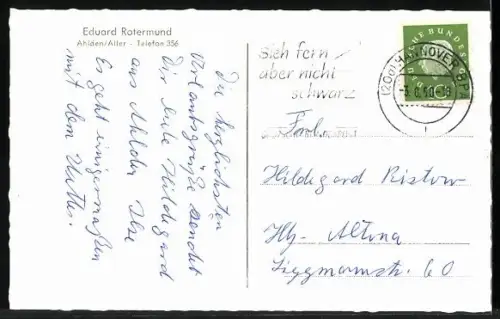 Eduard Rotermund
Ahlden/Aller - Telefon 356
Die herzlichsten
Urlaubsgrüße sendet
Dir liebe Hildegard
aus Ahlden Ilse
Es geht einigermaßen
mit dem Wetter.
sich fern
aber nicht
schwar
(20a) HANNOVER BP
DEUTSCHE BUNDES
Frl.
Hildegard Ristow
Hbg. Altona
60